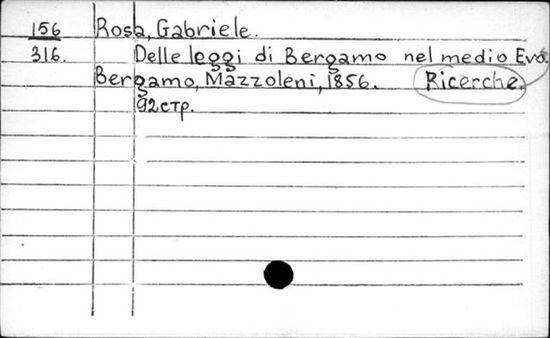 156 Rosa, Gabriele.
316. Delle leggi di Bergamo nel medio Evo.
Bergamo, Mazzoleni, 1856. Ricerche.
92 стр.